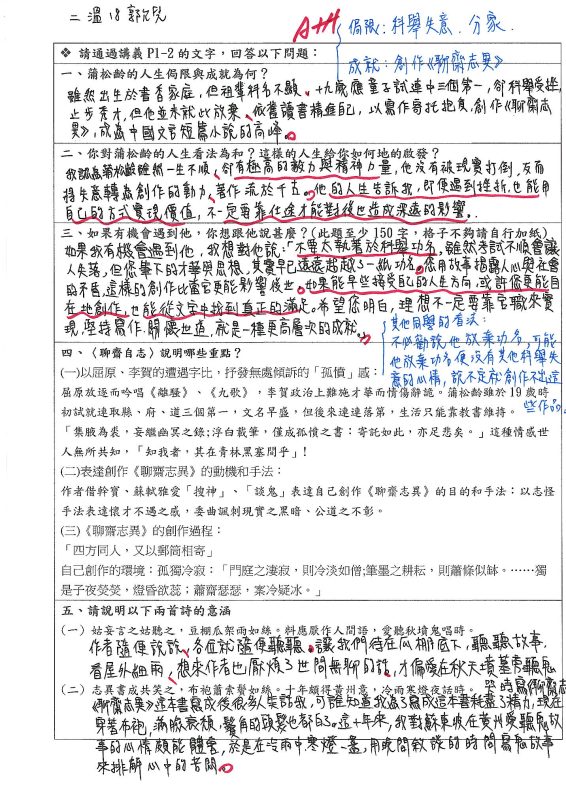 二溫18郭
A++
侷限：科舉失意、分家
成就：創作《聊齋志異》
❖ 請通過講義 P1-2 的文字，回答以下問題：
一、蒲松齡的人生侷限與成就為何？
雖然出生於書香家庭，但祖輩科名不顯、十九歲應童子試連中三個第一，卻科舉受挫，
止步秀才，但他並未就此放棄、依舊讀書精進自己，以寫作寄托抱負，創作《聊齋志
異》，成為中國文言短篇小說的高峰。
二、你對蒲松齡的人生看法為和？這樣的人生給你如何地的啟發？
我認為蒲松齡雖然一生不順、卻有極高的毅力與精神力量，他沒有被現實打倒，反而
將失意轉為創作的動力、著作流於千古。他的人生告訴我，即便遇到挫折，也能用
自己的方式實現價值，不一定要靠仕途才能對後世造成深遠的影響。
三、如果有機會遇到他，你想跟他說甚麼？(此題至少 150 字，格子不夠請自行加紙)
如果我有機會遇到他，我想對他說：「不要太執著於科舉功名，雖然考試不順會讓
人失落，但您筆下的才華與思想，其實早已遠遠超越了一紙功名。您用故事描露人心與社會
的矛盾，這樣的創作比當官更能影響後世。如果能早些接受自己的人生方向，或許您更能自
在地創作，也能從文字中找到真正的滿足。希望您明白，理想不一定要靠官職來實
現，堅持寫作、關懷世道，就是一種更高層次的成就。」
其他同學的看法：
不必勸說他放棄功名，可能
他放棄功名便沒有其他科舉失
意的心情，說不定就創作不出這
些作品。
四、〈聊齋自志〉說明哪些重點？
(一)以屈原、李賀的遭遇字比，抒發無處傾訴的「孤憤」感：
屈原放逐而吟唱《離騷》、《九歌》，李賀政治上難施才華而情傷辭詭。蒲松齡雖於 19 歲時
初試就連取縣、府、道三個第一，文名早盛，但後來連連落第，生活只能靠教書維持。
「集腋為裘，妄續幽冥之錄;浮白載筆，僅成孤憤之書：寄託如此，亦足悲矣。」這種情感世
人無所共知，「知我者，其在青林黑塞間乎」！
(二)表達創作《聊齋志異》的動機和手法：
作者借幹寶、蘇軾雅愛「搜神」、「談鬼」表達自己創作《聊齋志異》的目的和手法：以志怪
手法表達懷才不遇之感，委曲諷刺現實之黑暗、公道之不彰。
(三)《聊齋志異》的創作過程：
「四方同人，又以郵筒相寄」
自己創作的環境：孤獨冷寂：「門庭之淒寂，則冷淡如僧;筆墨之耕耘，則蕭條似缽。……獨
是子夜熒熒，燈昏欲蕊；蕭齋瑟瑟，案冷疑冰。」
五、請說明以下兩首詩的意涵
(一) 姑妄言之姑聽之，豆棚瓜架雨如絲。料應厭作人間語，愛聽秋墳鬼唱時。
作者隨便說說，各位就隨便聽聽。讓我們待在瓜棚底下，聽聽故事、
看屋外細雨，想來作者也厭煩了世間無聊的話，才偏愛在秋天墳墓旁聽鬼
哭時寫《聊齋》
(二) 志異書成共笑之，布袍蕭索鬢如絲。十年頗得黃州意，冷雨寒燈夜話時。
《聊齋志異》這本書寫成後很多人笑話我，可誰知道我為了寫成這本書耗盡了精力，現在
穿著布袍，滿臉衰頹，鬢角的頭髮也都白了。這十年來，我對蘇東坡在黃州愛聽鬼故
事的心情頗能體會，於是在冷雨中寒燈一盞，用晚間敘談的時間寫鬼故事
來排解心中的苦悶。